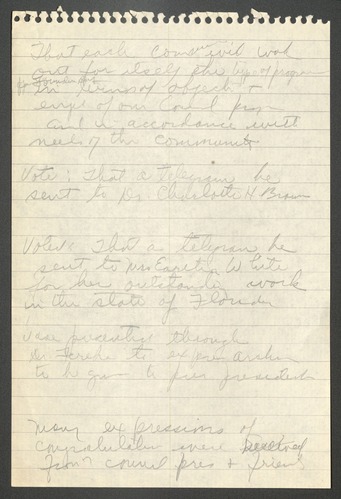 That each community work
out for itself the type of program
in terms of objects +
of our Council
and in accordance with
needs of the community
Vote: That a telegram be
sent to Dr Charlotte H Brown
Voted: That a telegram be
sent to Mrs White
for her outstanding work
in the state of Florida
Vase presented through
Dr to
to be given to president
Many expressions of
congratulation were received
from council pres + friends